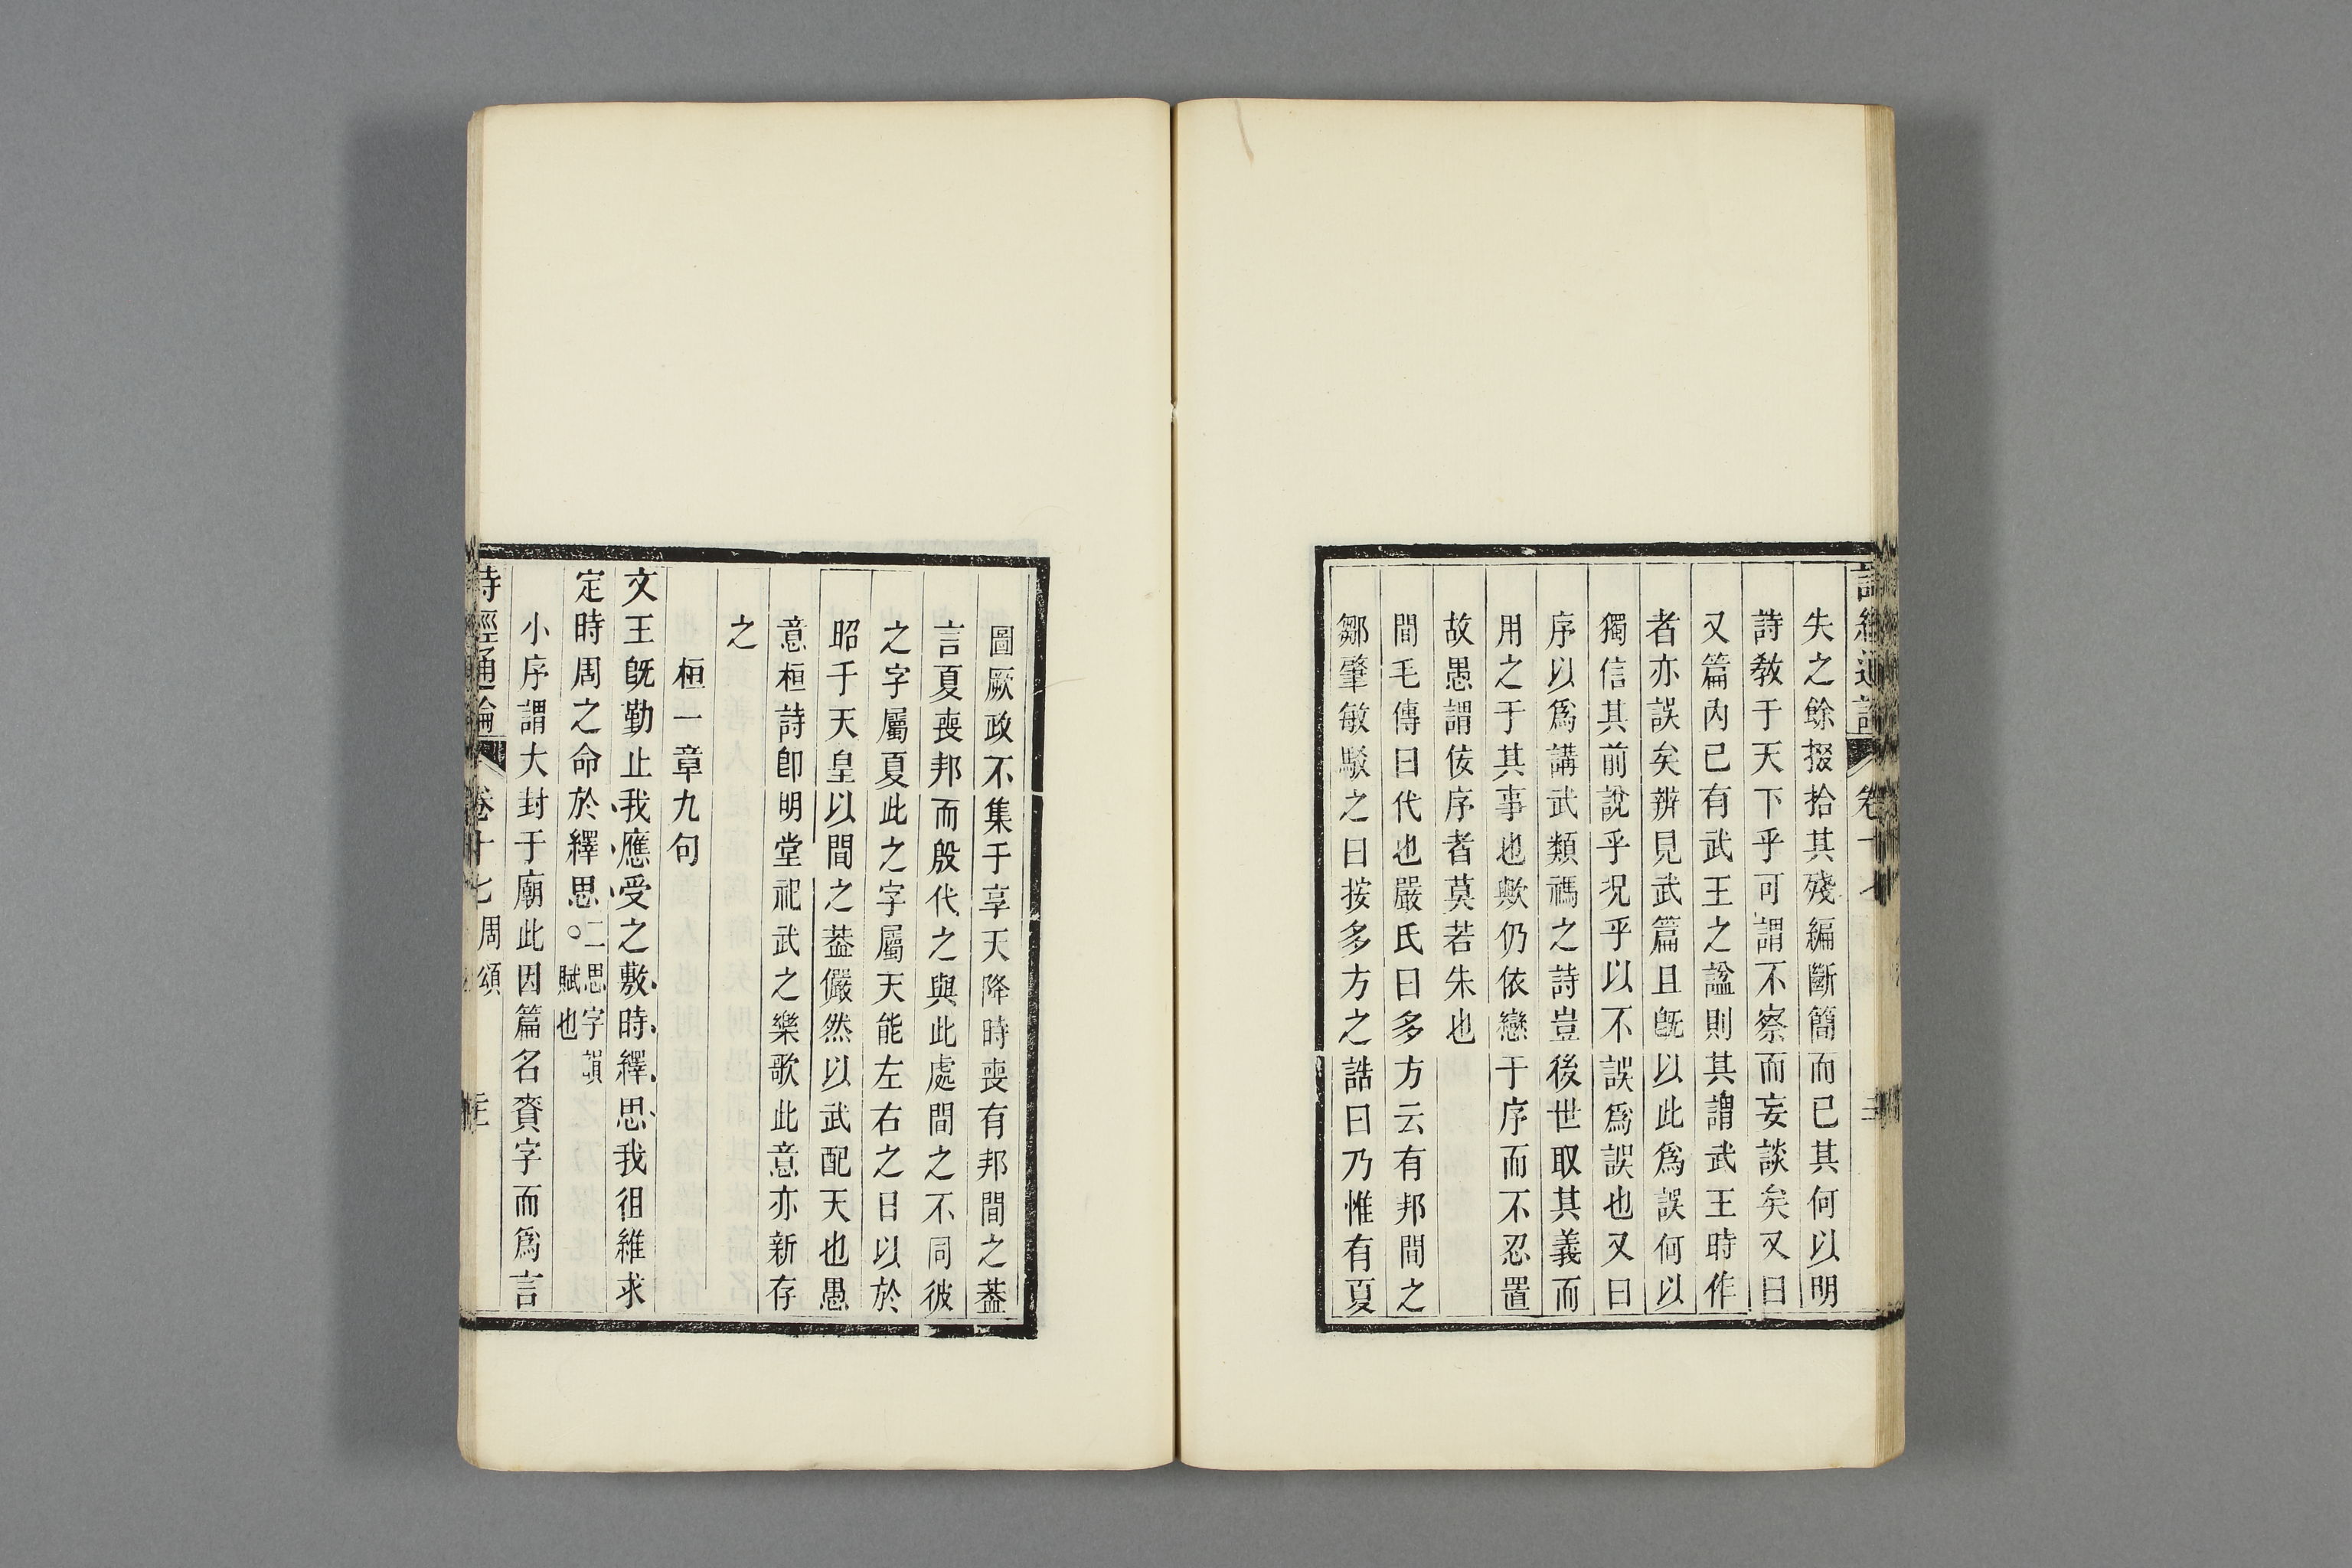 失之餘掇拾其殘編斷簡而已其何以明
詩敎于天下乎可謂不察而妄談矣又曰
又篇內已有武王之諡則其謂武王時作
者亦誤矣辨見武篇且旣以此爲誤何以
獨信其前說乎況乎以不誤爲誤也又曰
序以爲講武類禡之詩豈後世取其義而
用之于其事也歟仍依戀于序而不忍置
故愚謂佞序者莫若朱也
間毛傳曰代也嚴氏曰多方云有邦間之
鄒肇敏駁之曰按多方之誥曰乃惟有夏
圖厥政不集于享天降時喪有邦間之葢
言夏喪邦而殷代之與此處間之不同彼
之字屬夏此之字屬天能左右之曰以於
昭于天皇以間之葢儼然以武配天也愚
意桓詩卽明堂祀武之樂歌此意亦新存
之
桓一章九句
文王旣勤止我應受之敷時繹思我徂維求
定時周之命於繹思○二思字韻賦也
小序謂大封于廟此因篇名賚字而爲言
詩經通論 卷十七 周頌